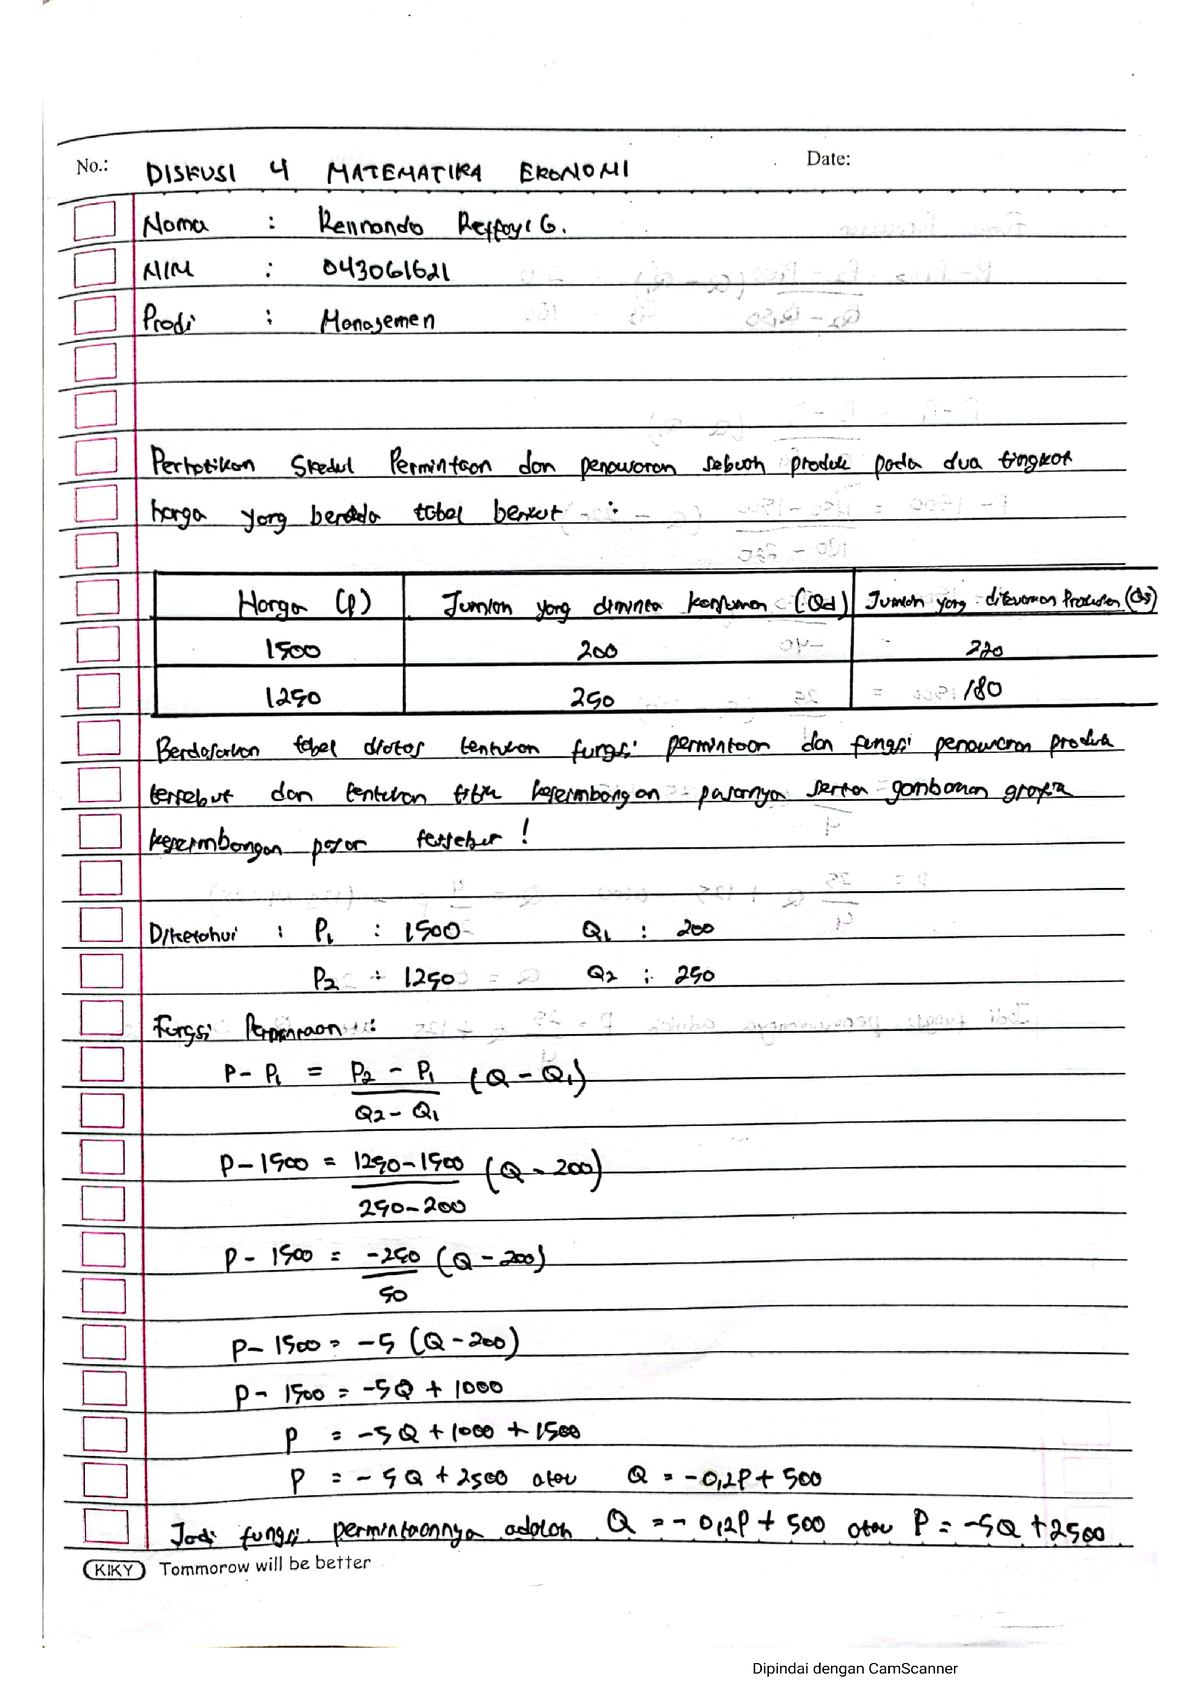 No.: DISKUSI 4 MATEMATIKA EKONOMI Date:
Nama : Rennando G.
NIM : 043061621
Prodi : Manajemen
Perhatikan Skedul Permintaan dan penawaran sebuah produk pada dua tingkat
harga yang berada tabel berikut :
Harga (P) Jumlah yang diminta konsumen (Qd) Jumlah yang ditawarkan Produsen (Qs)
1500 200 220
1250 250 180
Berdasarkan tabel diatas tentukan fungsi permintaan dan fungsi penawaran produk
tersebut dan tentukan titik keseimbangan pasarnya serta gambarkan grafik
keseimbangan pasar tersebut !
Diketahui : P1 : 1500 Q1 : 200
P2 : 1250 Q2 : 250
Fungsi Permintaan :
P - P1 = P2 - P1 (Q - Q1)
Q2 - Q1
P - 1500 = 1250 - 1500 (Q - 200)
250 - 200
P - 1500 = -250 (Q - 200)
50
P - 1500 = -5 (Q - 200)
P - 1500 = -5Q + 1000
P = -5Q + 1000 + 1500
P = -5Q + 2500 atau Q = -0,2P + 500
Jadi fungsi permintaannya adalah Q = -0,2P + 500 atau P = -5Q + 2500
KIKY Tommorow will be better
Dipindai dengan CamScanner